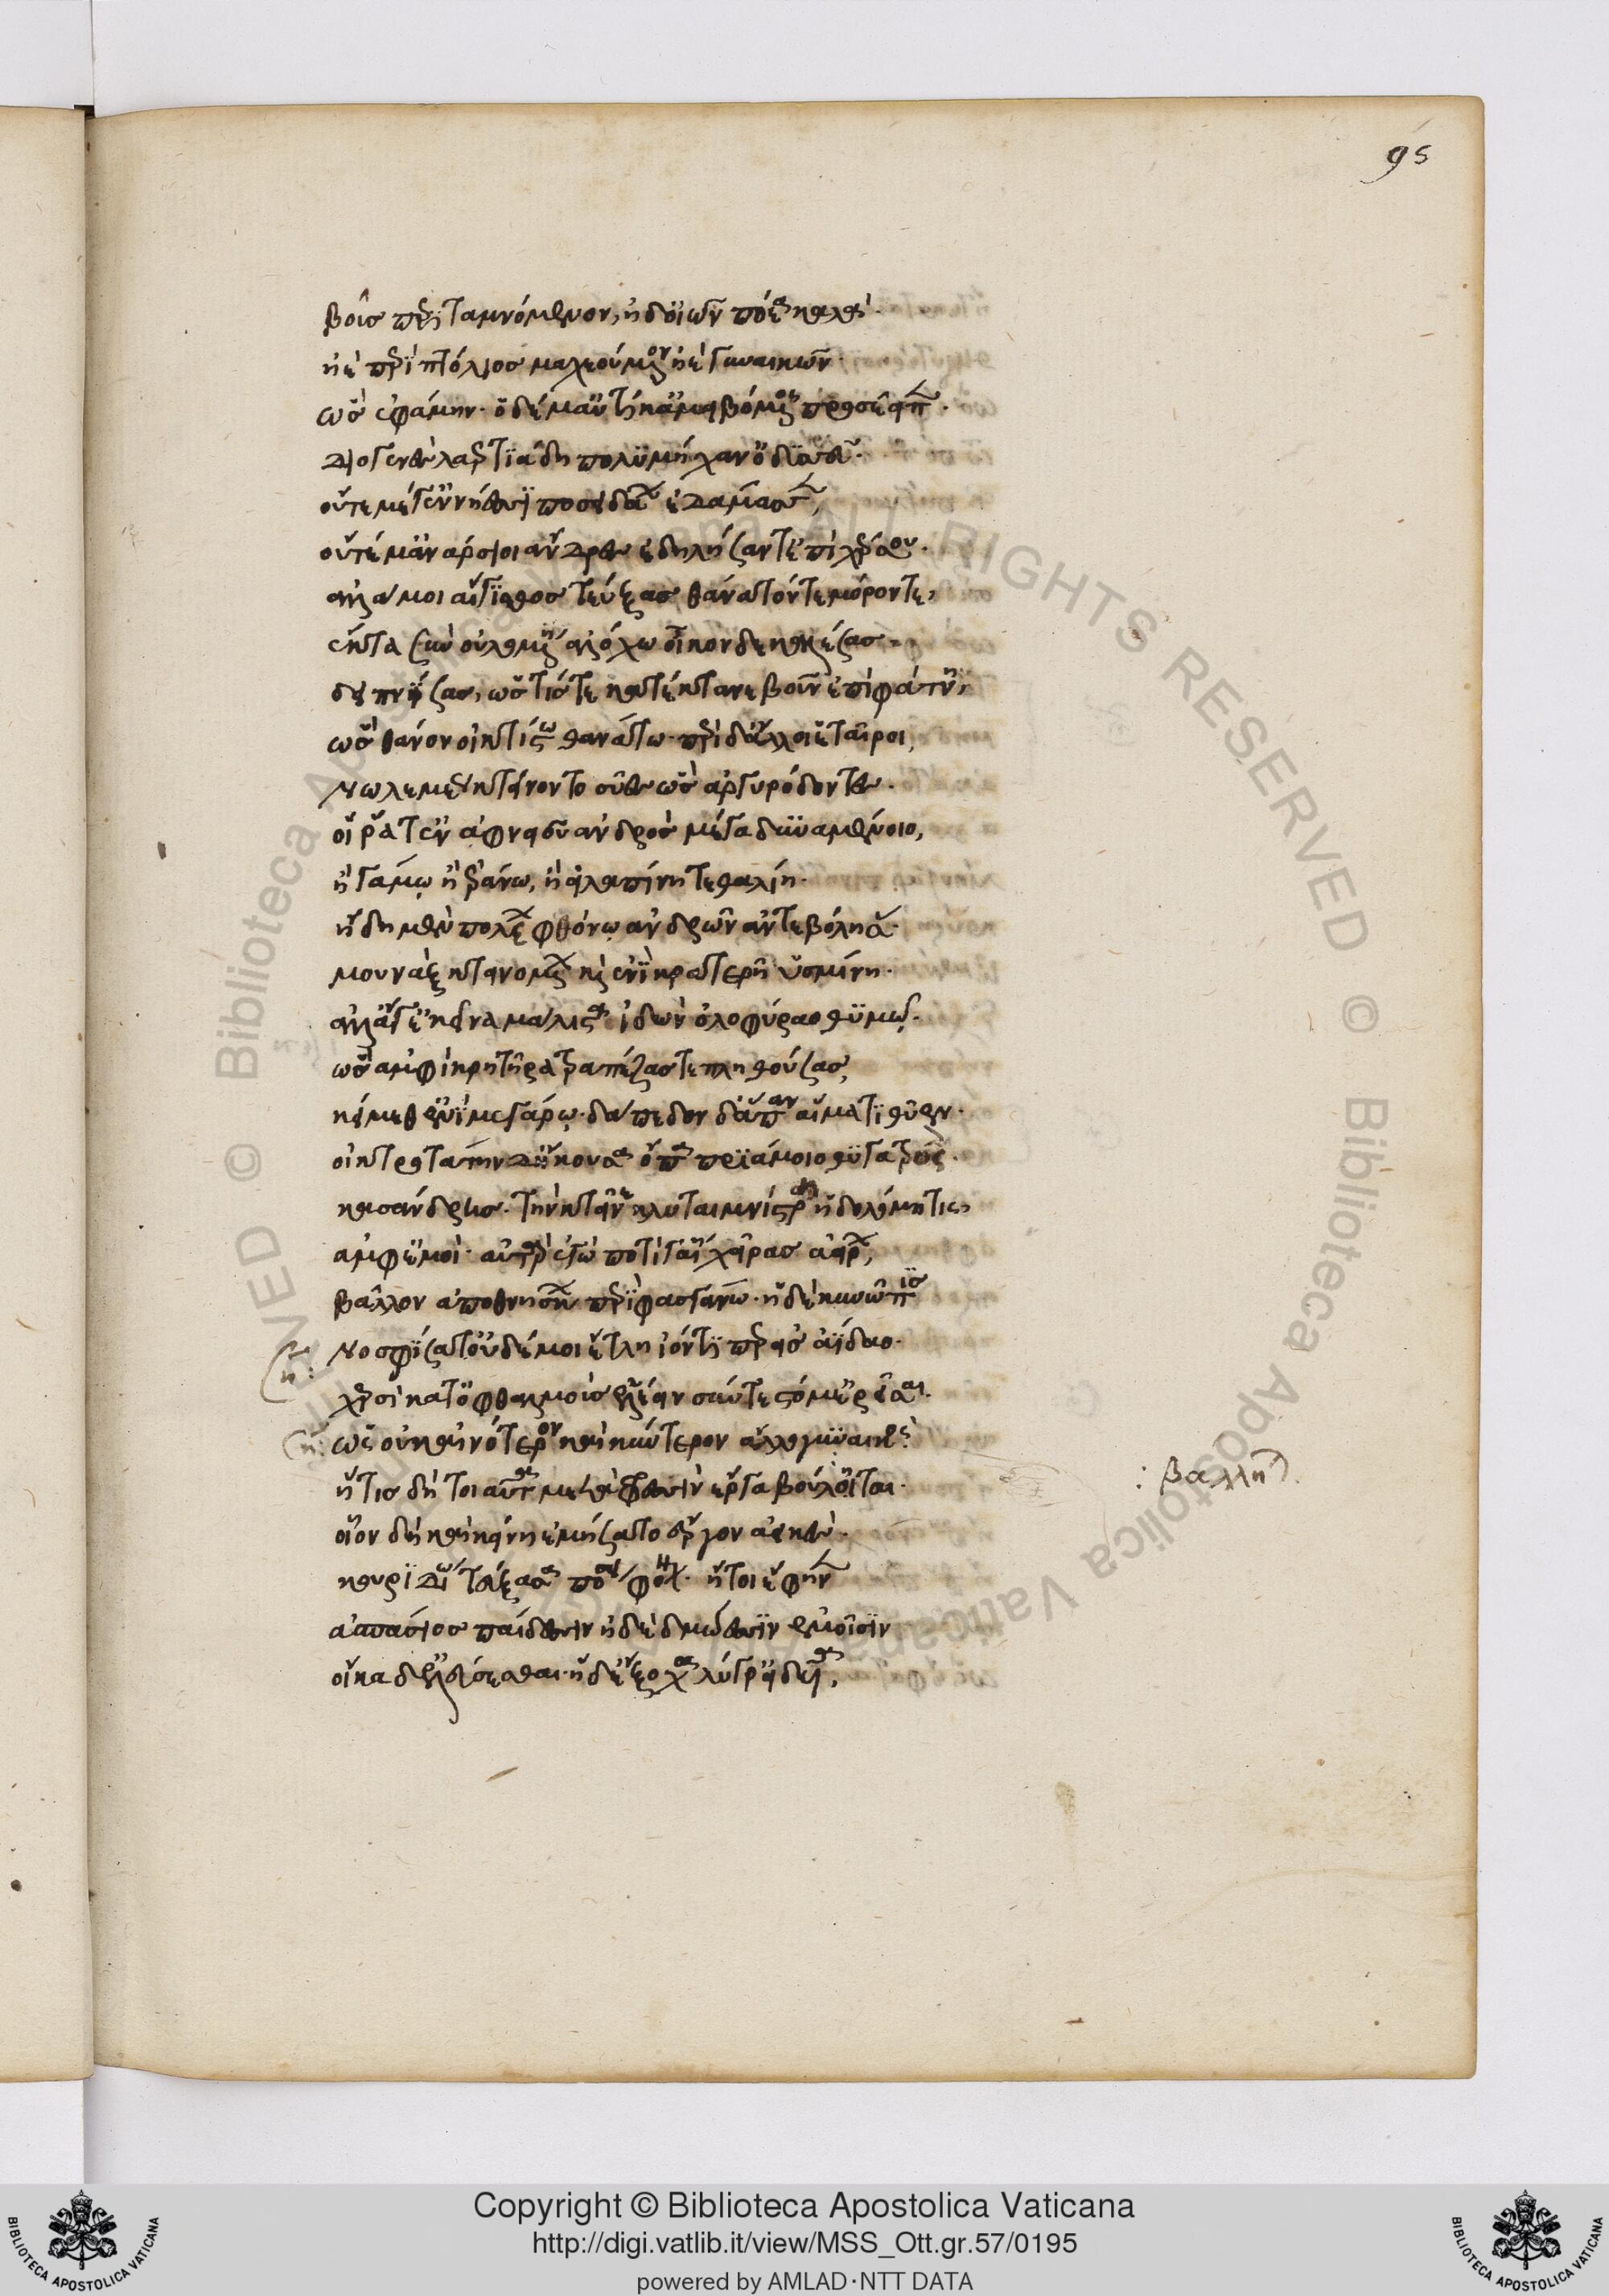 95
βοῦς περιταμνόμενον, ἠδ' οἰῶν πώεα καλά.
ἠὲ περὶ πτόλιος μαχεούμενον ἠὲ γυναικῶν.
ὣς ἐφάμην. ὁ δέ μ' αὐτίκ' ἀμειβόμενος προσέειπεν.
διογενὲς λαερτιάδη πολυμήχαν' ὀδυσσεῦ.
οὔτέ με γ' ἐν νήεσσι ποσειδάων ἐδάμασσεν,
οὔτέ μ' ἀνάρσιοι ἄνδρες ἐδηλήσαντ' ἐπὶ χέρσου.
ἀλλά μοι αἴγισθος τεύξας θάνατόν τε μόρον τε,
ἔκτα σὺν οὐλομένῃ ἀλόχῳ οἶκον δὲ καλέσας.
δειπνήσας, ὥς τίς τε κατέκτανε βοῦν ἐπὶ φάτνῃ,
ὣς θάνον οἰκτίστῳ θανάτῳ. περὶ δ' ἄλλοι ἑταῖροι,
νωλεμέως κτείνοντο σύες ὣς ἀργιόδοντες.
οἵ ῥά τ' ἐν ἀφνειοῦ ἀνδρὸς μέγα δυναμένοιο,
ἢ γάμῳ ἢ ἐράνῳ, ἢ εἰλαπίνῃ τεθαλυίῃ.
ἤδη μὲν πολέων φόνῳ ἀνδρῶν ἀντεβόλησας.
μουνὰξ κτεινομένων καὶ ἐνὶ κρατερῇ ὑσμίνῃ.
ἀλλά γε κεῖνα μάλιστα ἰδὼν ὀλοφύραο θυμῷ.
ὡς ἀμφὶ κρητῆρα τραπέζας τε πληθούσας,
κείμεθ' ἐνὶ μεγάρῳ. δάπεδον δ' ἅπαν αἵματι θῦεν.
οἰκτροτάτην δ' ἤκουσα ὄπα πριάμοιο θυγατρός.
κασάνδρης. τὴν κτεῖνε κλυταιμνήστρη δολόμητις,
ἀμφ' ἐμοί. αὐτὰρ ἐγὼ ποτὶ γαίῃ χεῖρας ἀείρων,
βάλλον ἀποθνήσκων περὶ φασγάνῳ. ἡ δὲ κυνῶπις
νοσφίσατ' οὐδέ μοι ἔτλη ἰόντι περ εἰς ἀΐδαο.
χερσὶ κατ' ὀφθαλμοὺς ἑλέειν σύν τε στόμ' ἐρεῖσαι.
ὣς οὐκ αἰνότερον καὶ κύντερον ἄλλο γυναικός
ἥτις δὴ τοιαῦτα μετὰ φρεσὶν ἔργα βούληται.
: βάλληται
οἷον δὴ καὶ κείνη ἐμήσατο ἔργον ἀεικές.
κουριδίῳ τεύξασα πόσει φόνον. ἤτοι ἔφην
ἀσπάσιος παίδεσσιν ἠδὲ δμώεσσιν ἐμοῖσιν
οἴκαδ' ἐλεύσεσθαι. ἡ δ' ἔξοχα λυγρὰ ἰδυῖα,
Copyright © Biblioteca Apostolica Vaticana
http://digi.vatlib.it/view/MSS_Ott.gr.57/0195
powered by AMLAD·NTT DATA